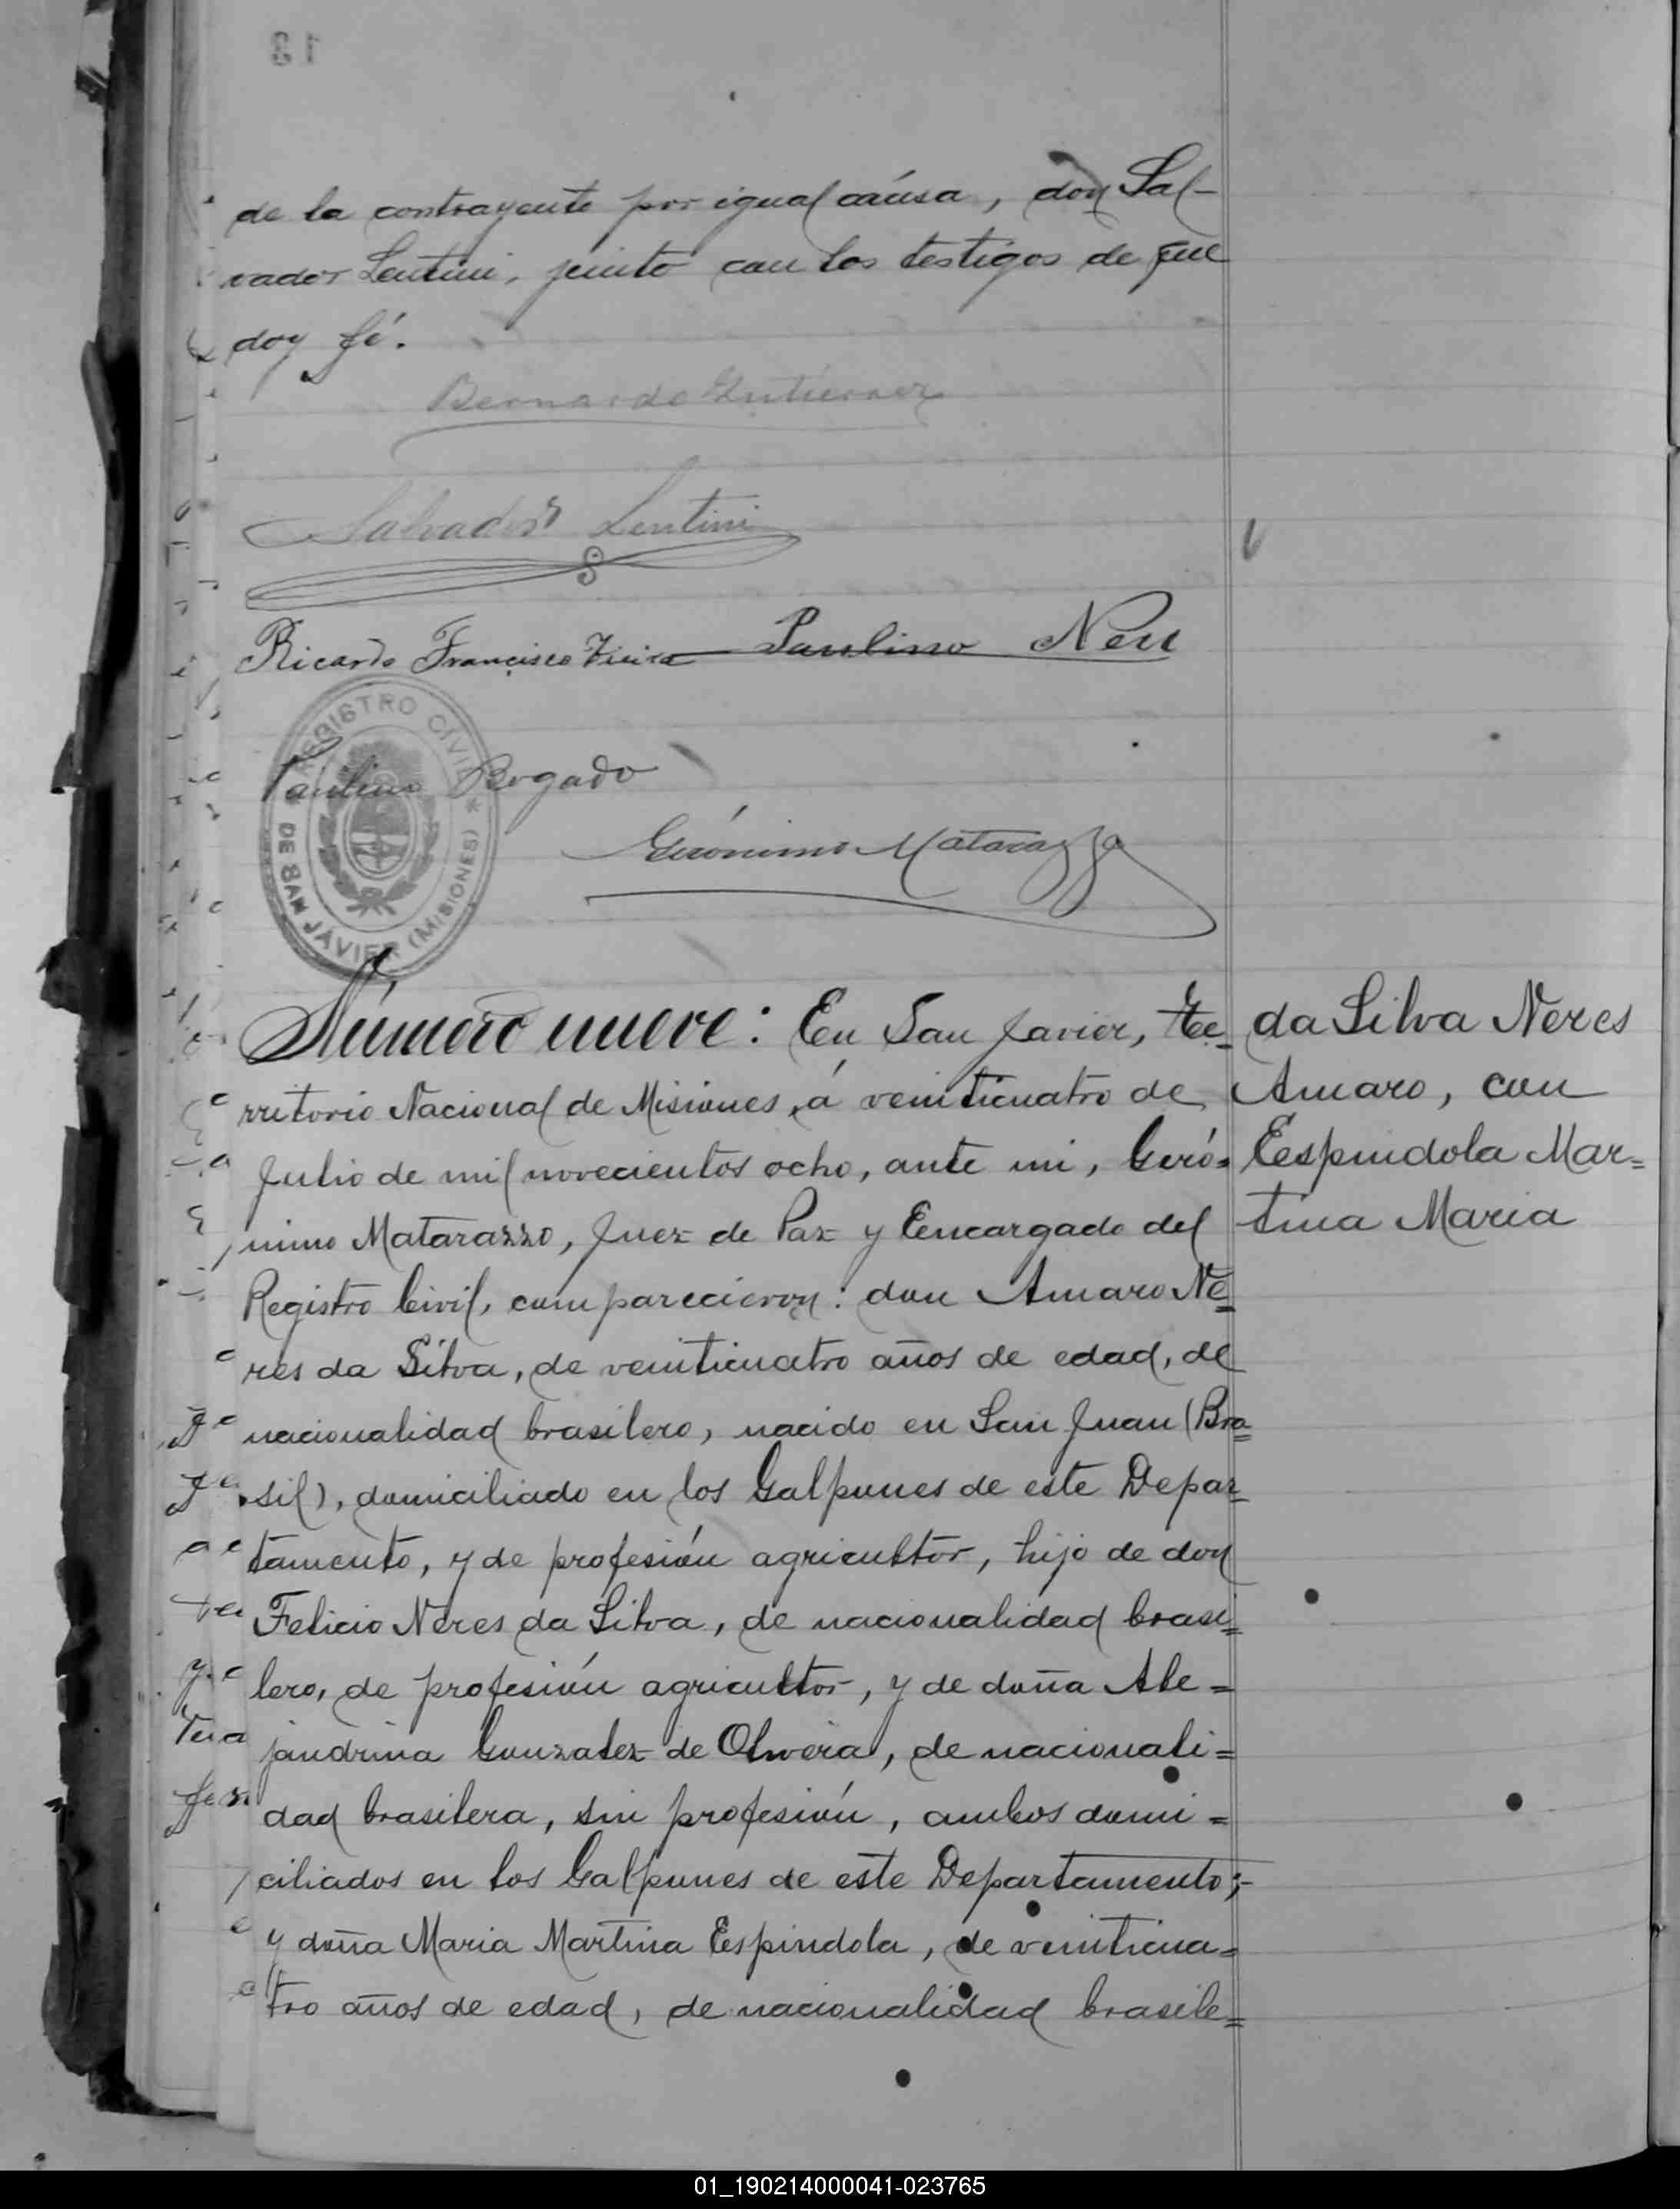 de la contrayente por igual causa, don Sal-
vador Lentini, junto con los testigos de que
doy fé.
Bernardo Gutierrez
Salvador Lentini
Ricardo Francisco Vieira Paulino Neu
REGISTRO CIVIL
DE SAN JAVIER (MISIONES)
Paulino Bogado
Gerónimo Matarazzo
Número nueve: En San Javier, te=
rritorio Nacional de Misiones, á veinticuatro de
Julio de mil novecientos ocho, ante mi, Geró=
nimo Matarazzo, Juez de Paz y Encargado del
Registro Civil, comparecieron: don Amaro Ne=
res da Silva, de veinticuatro años de edad, de
nacionalidad brasilero, nacido en San Juan (Bra=
sil), domiciliado en los Galpones de este Depar=
tamento, y de profesión agricultor, hijo de don
Felicio Neres da Silva, de nacionalidad brasi=
lero, de profesión agricultor, y de doña Ale=
jandrina Gonzalez de Olivera, de nacionali=
dad brasilera, sin profesión, ambos domi=
ciliados en los Galpones de este Departamento;-
y doña Maria Martina Espindola, de veinticua=
tro años de edad, de nacionalidad brasile=
da Silva Neres
Amaro, con
Espindola Mar=
tina Maria
01_190214000041-023765